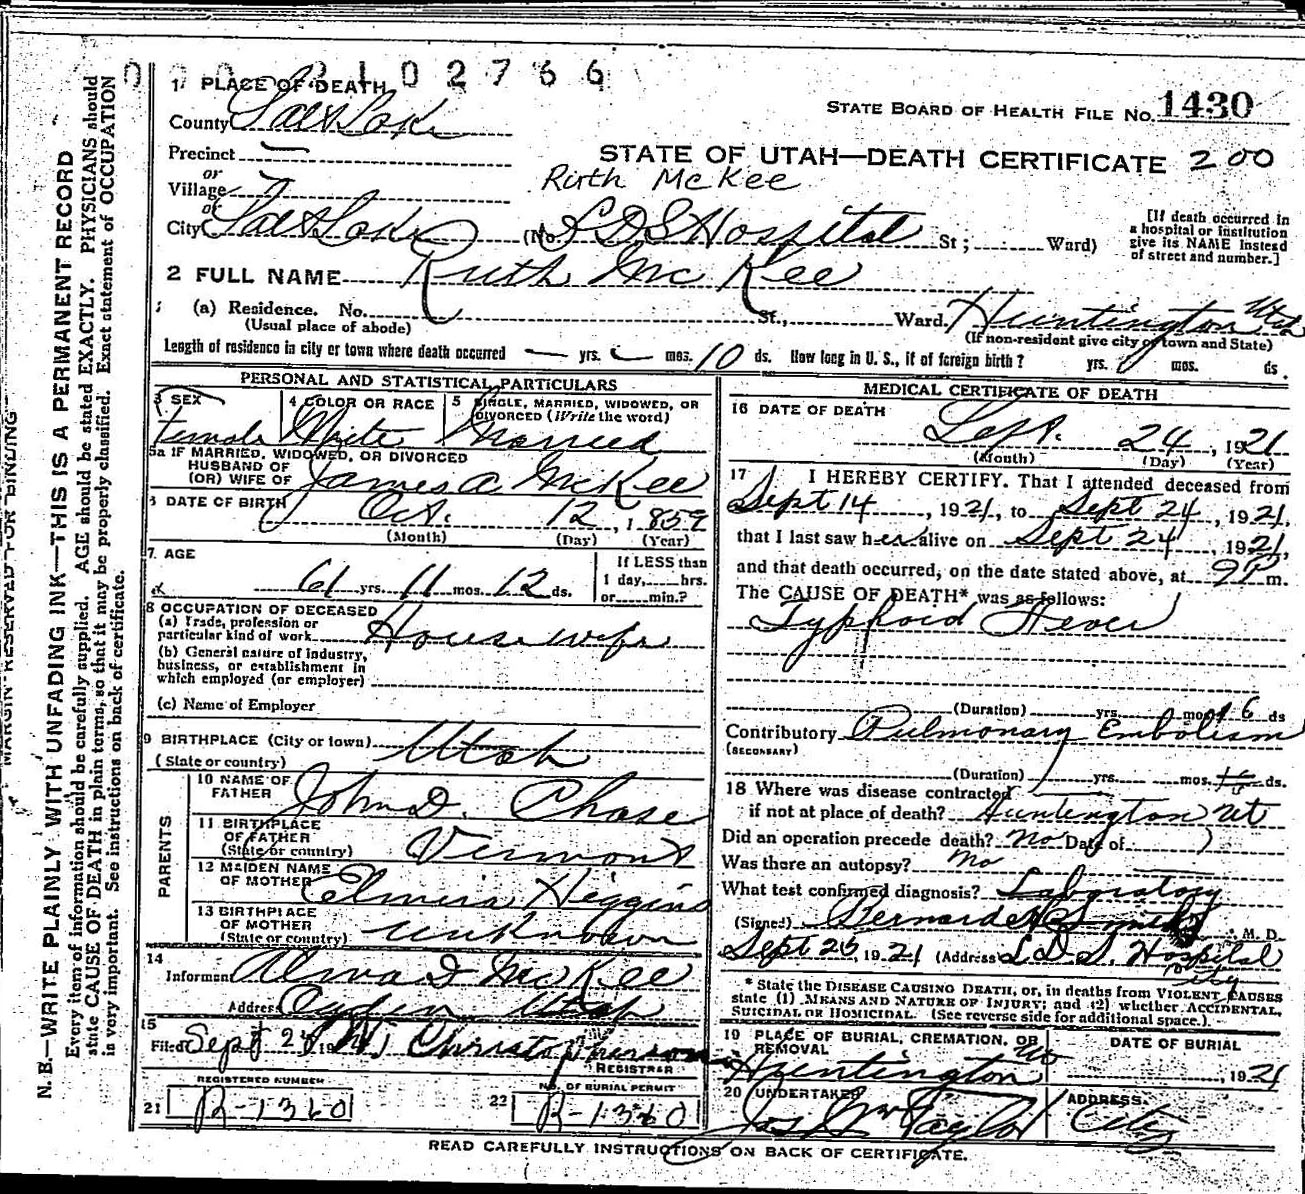 0 0 0 2 1 0 2 7 6 6
1 PLACE OF DEATH
STATE BOARD OF HEALTH FILE No. 1430
County Salt Lake
Precinct —
STATE OF UTAH—DEATH CERTIFICATE 200
or
Village
Ruth McKee
or
City Salt Lake (No. LDS Hospital St; Ward)
[If death occurred in
a hospital or institution
give its NAME instead
of street and number.]
2 FULL NAME Ruth Mc Kee
(a) Residence. No. St., Ward. Huntington Utah
(Usual place of abode) (If non-resident give city or town and State)
Length of residence in city or town where death occurred — yrs. — mos. 10 ds. How long in U. S., if of foreign birth? yrs. mos. ds.
PERSONAL AND STATISTICAL PARTICULARS
3 SEX 4 COLOR OR RACE 5 SINGLE, MARRIED, WIDOWED, OR
DIVORCED (Write the word)
Female White Married
5a IF MARRIED, WIDOWED, OR DIVORCED
HUSBAND OF
(OR) WIFE OF James A McKee
DATE OF BIRTH Oct. 12, 1859
(Month) (Day) (Year)
7. AGE
61 yrs. 11 mos. 12 ds.
If LESS than
1 day, hrs.
or min.?
8 OCCUPATION OF DECEASED
(a) Trade, profession or
particular kind of work Housewife
(b) General nature of industry,
business, or establishment in
which employed (or employer)
(c) Name of Employer
9 BIRTHPLACE (City or town) Utah
(State or country)
PARENTS
10 NAME OF
FATHER John D. Chase
11 BIRTHPLACE
OF FATHER
(State or country) Vermont
12 MAIDEN NAME
OF MOTHER Elmira Higgins
13 BIRTHPLACE
OF MOTHER
(State or country) unknown
14
Informant Alma D McKee
Address Ogden Utah
15
Filed Sept 19 Christopherson
REGISTRAR
REGISTERED NUMBER
21 R-1360
NO. OF BURIAL PERMIT
22 R-1360
MEDICAL CERTIFICATE OF DEATH
16 DATE OF DEATH
Sept. 24, 1921
(Month) (Day) (Year)
17 I HEREBY CERTIFY. That I attended deceased from
Sept 14, 1921, to Sept 24, 1921,
that I last saw her alive on Sept 24, 1921,
and that death occurred, on the date stated above, at 9 P m.
The CAUSE OF DEATH* was as follows:
Typhoid Fever
(Duration) yrs. mos. 16 ds
Contributory Pulmonary Embolism
(SECONDARY)
(Duration) yrs. mos. ds.
18 Where was disease contracted
if not at place of death? Huntington Ut
Did an operation precede death? No Date of
Was there an autopsy? No
What test confirmed diagnosis? Laboratory
(Signed) M. D.
Sept 25, 1921 (Address L. D. S. Hospital
City
* State the DISEASE CAUSING DEATH, or, in deaths from VIOLENT CAUSES
state (1) MEANS AND NATURE OF INJURY; and (2) whether ACCIDENTAL,
SUICIDAL OR HOMICIDAL. (See reverse side for additional space.)
19 PLACE OF BURIAL, CREMATION, OR
REMOVAL
Huntington
DATE OF BURIAL
, 1921
20 UNDERTAKER
Jos Wm Taylor
ADDRESS
City
READ CAREFULLY INSTRUCTIONS ON BACK OF CERTIFICATE.
MARGIN RESERVED FOR BINDING
N. B.—WRITE PLAINLY WITH UNFADING INK—THIS IS A PERMANENT RECORD
Every item of information should be carefully supplied. AGE should be stated EXACTLY. PHYSICIANS should
state CAUSE OF DEATH in plain terms, so that it may be properly classified. Exact statement of OCCUPATION
is very important. See instructions on back of certificate.